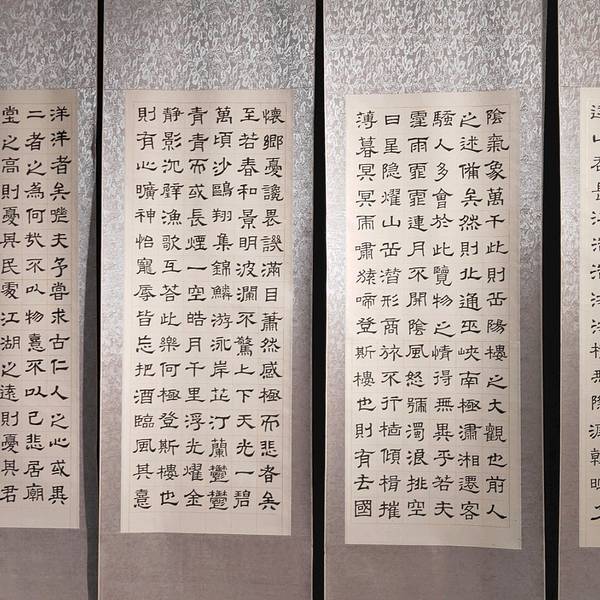 遠山吞長江浩浩湯湯橫無際涯朝暉夕
陰氣象萬千此則岳陽樓之大觀也前人
之述備矣然則北通巫峽南極瀟湘遷客
騷人多會於此覽物之情得無異乎若夫
霪雨霏霏連月不開陰風怒號濁浪排空
日星隐耀山岳潛形商旅不行檣傾楫摧
薄暮冥冥雨嘯猿啼登斯樓也則有去國
懷鄉憂讒畏譏滿目蕭然感極而悲者矣
至若春和景明波瀾不驚上下天光一碧
萬頃沙鷗翔集錦鱗游泳岸芷汀蘭鬱鬱
青青而或長煙一空皓月千里浮光耀金
靜影沉璧漁歌互答此樂何極登斯樓也
則有心曠神怡寵辱皆忘把酒臨風其憙
洋洋者矣嗟夫予嘗求古仁人之心或異
二者之為何哉不以物憙不以己悲居廟
堂之高則憂其民處江湖之遠則憂其君